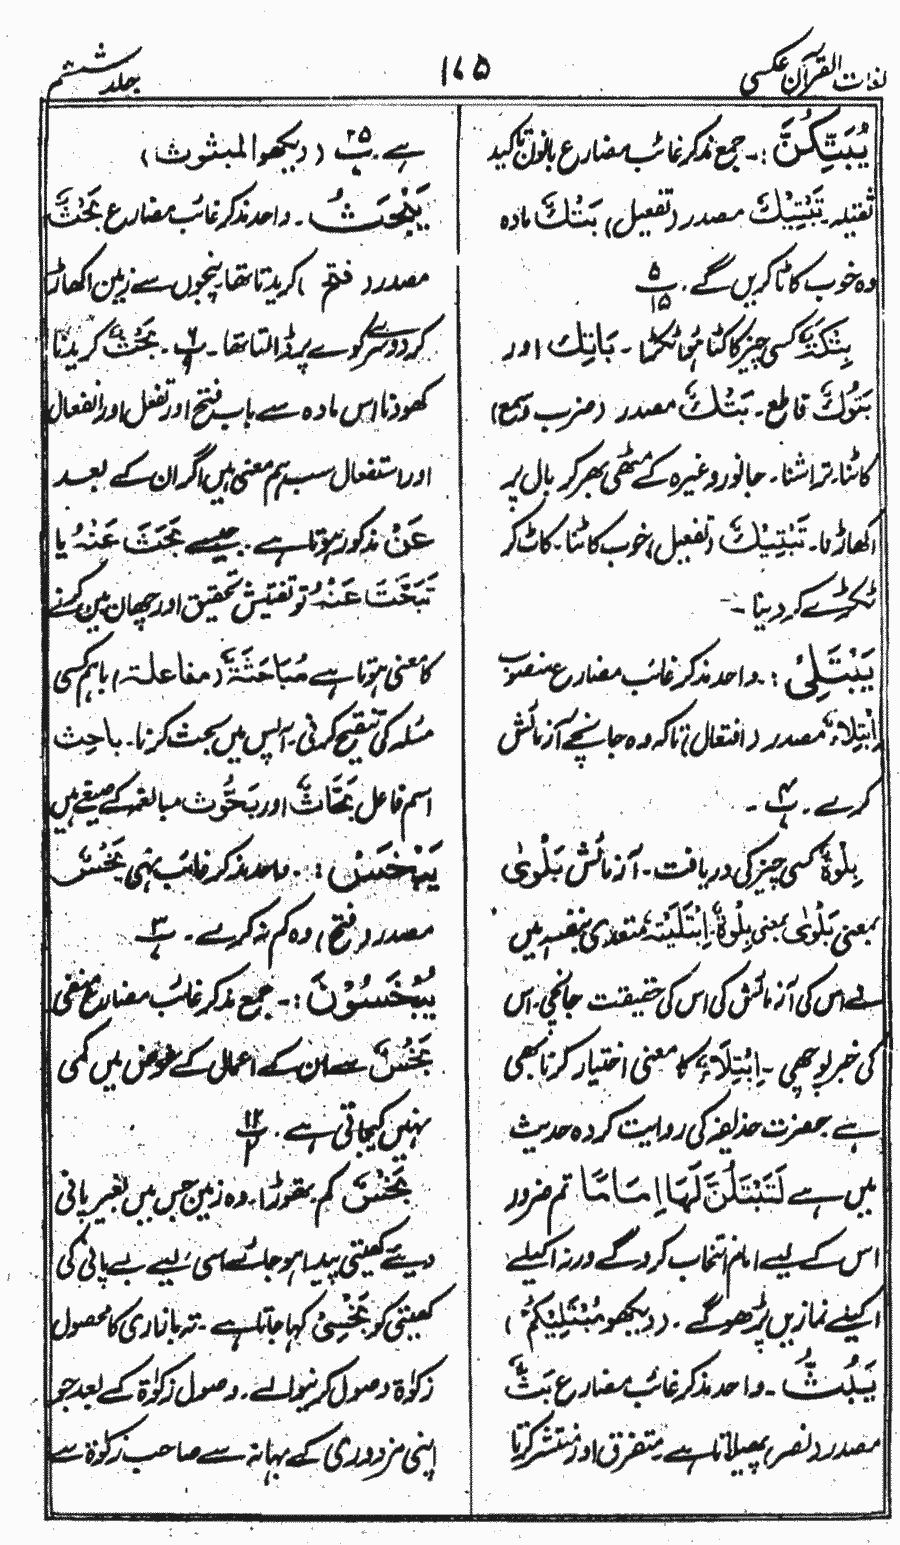 لغات القرآن عکسی
۱۶۵
جلد ششم
یُبَتِّکُنَّ :۔ جمع مذکر غائب مضارع بانون تاکید
ثقیلہ۔ تَبْتِیْکٌ مصدر (تفعیل) بَتْکٌ مادہ
وہ خوب کاٹا کریں گے۔ ۵/۱۵
بِتْکَۃٌ کسی چیز کا کٹا ہوا ٹکڑا ۔ بَاتِکٌ اور
بَتُوْکٌ قاطع۔ بَتْکٌ مصدر (ضرب وسمع)
کاٹنا۔ تراشنا۔ جانور وغیرہ کے مٹھی بھر کر بال پر
اکھاڑنا۔ تَبْتِیْکٌ (تفعیل) خوب کاٹنا۔ کاٹ کر
ٹکڑے کر دینا ۔
یَبْتَلِیُ :۔ واحد مذکر غائب مضارع منصوب
اِبْتِلَاءٌ مصدر (افتعال) تاکہ وہ جانچے آزمائش
کرے ۔ ۴
بِلْوَۃٌ کسی چیز کی دریافت۔ آزمائش بَلْوٰی
بمعنی بَلْوٰی بمعنی بِلْوَۃٌ۔ اِبْتَلَیْتُہٗ متعدی بنفسہ میں
نے اس کی آزمائش کی اس کی حقیقت جانچی۔ اس
کی خبر پوچھی ۔ اِبْتِلَاءٌ کا معنی اختیار کرنا بھی
ہے حضرت حذیفہ کی روایت کردہ حدیث
میں ہے لَتَبْتَلُنَّ لَھَا اِمَامًا تم ضرور
اس کے لیے امام انتخاب کرو گے ورنہ اکیلے
اکیلے نمازیں پڑھو گے ۔ (دیکھو مُبْتَلِیْکُمْ)
یَبُثُّ ۔ واحد مذکر غائب مضارع بَثٌّ
مصدر (نصر) پھیلاتا ہے۔ متفرق اور منتشر کرتا
ہے۔ ۲۵ (دیکھو المبثوث)
یَبْحَثُ ۔ واحد مذکر غائب مضارع بَحْثٌ
مصدر (فتح) کریدتا تھا۔ پنجوں سے زمین اکھاڑ
کر دوسرے کوے پر ڈالتا تھا ۔ ۶ ۔ بَحْثٌ کریدنا
کھودنا اس مادہ سے باب فتح اور تفعل اور انفعال
اور استفعال سب ہم معنی ہیں اگر ان کے بعد
عَنْ مذکور ہوتا ہے۔ جیسے بَحَثَ عَنْہُ یا
تَبَحَّثَ عَنْہُ تو تفتیش تحقیق اور چھان بین کرنے
کا معنی ہوتا ہے مُبَاحَثَۃٌ (مفاعلۃ) باہم کسی
مسئلہ کی تنقیح کرنی۔ آپس میں بحث کرنا۔ باحِث
اسم فاعل بَحَّاثٌ اور بَحُّوث مبالغہ کے صیغے ہیں
یَبْخَسْ :۔ واحد مذکر غائب نہی بَخْسٌ
مصدر (فتح) وہ کم نہ کرے ۔ ۳
یُبْخَسُوْنَ :۔ جمع مذکر غائب مضارع منفی
بَخْسٌ سے ان کے اعمال کے عوض میں کمی
نہیں کیجاتی ہے ۔ ۱۲/۲
بَخْسٌ کم ۔ تھوڑا۔ وہ زمین جس میں بغیر پانی
دیئے کھیتی پیدا ہو جائے اسی لیے بے پانی کی
کھیتی کو بَخْسِیٌّ کہا جاتا ہے ۔ تہ بازاری کا محصول
زکوٰۃ وصول کرنیوالے ۔ وصول زکوٰۃ کے بعد جو
اپنی مزدوری کے بہانہ سے صاحب زکوٰۃ سے